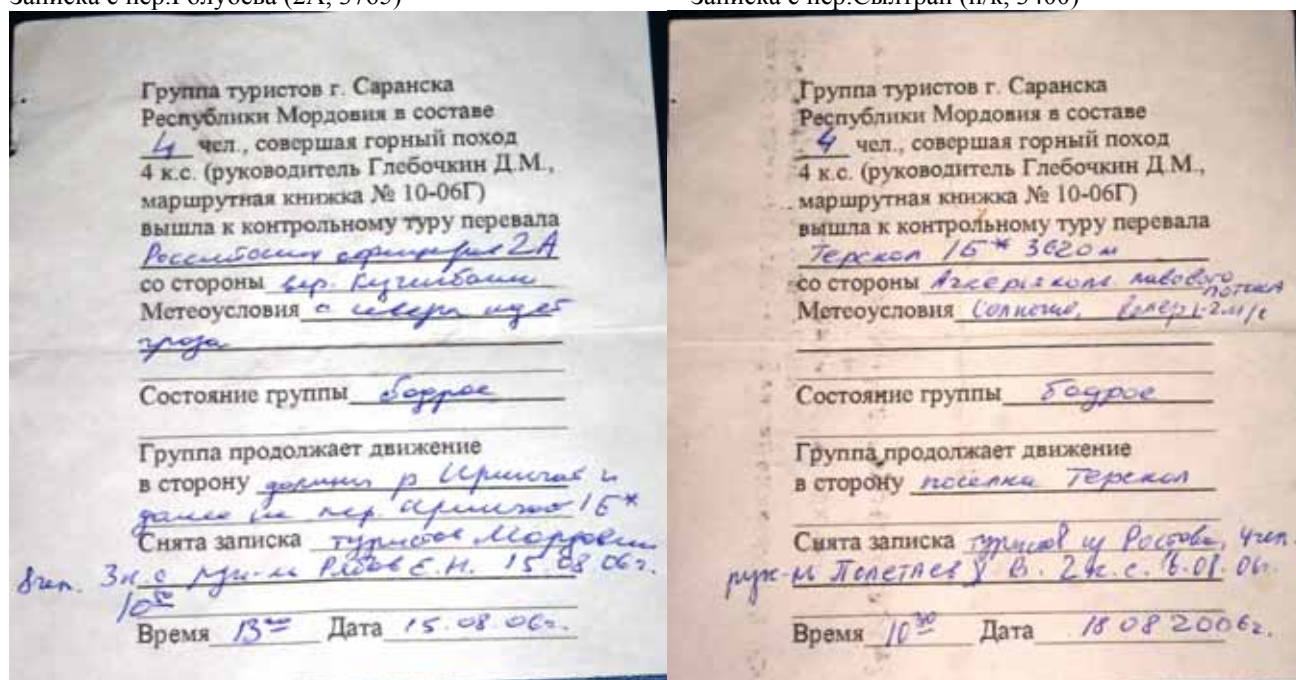 Записка с пер.Голубева (2А, 3765)
Записка с пер.Сылтран (н/к, 3400)
Группа туристов г. Саранска
Республики Мордовия в составе
4 чел., совершая горный поход
4 к.с. (руководитель Глебочкин Д.М.,
маршрутная книжка № 10-06Г)
вышла к контрольному туру перевала
Российских офицеров 2А
со стороны
Метеоусловия с севера идет
гроза
Состояние группы бодрое
Группа продолжает движение
в сторону долины р Ирикчат и
далее на пер. Ирикчат 1Б*
Снята записка туристов Мордовии
8 чел. 3 к.с рук-ль Рябов Е.Н. 15.08.06г.
Время 13 Дата 15.08.06г.
Группа туристов г. Саранска
Республики Мордовия в составе
4 чел., совершая горный поход
4 к.с. (руководитель Глебочкин Д.М.,
маршрутная книжка № 10-06Г)
вышла к контрольному туру перевала
Терскол 1Б* 3620 м
со стороны лавового потока
Метеоусловия Солнечно, ветер 1-2 м/с
Состояние группы бодрое
Группа продолжает движение
в сторону поселка Терскол
Снята записка туристов из Ростова, 4 чел.
рук-ль В. 2 к.с.
Время 10 Дата 18 08 2006г.